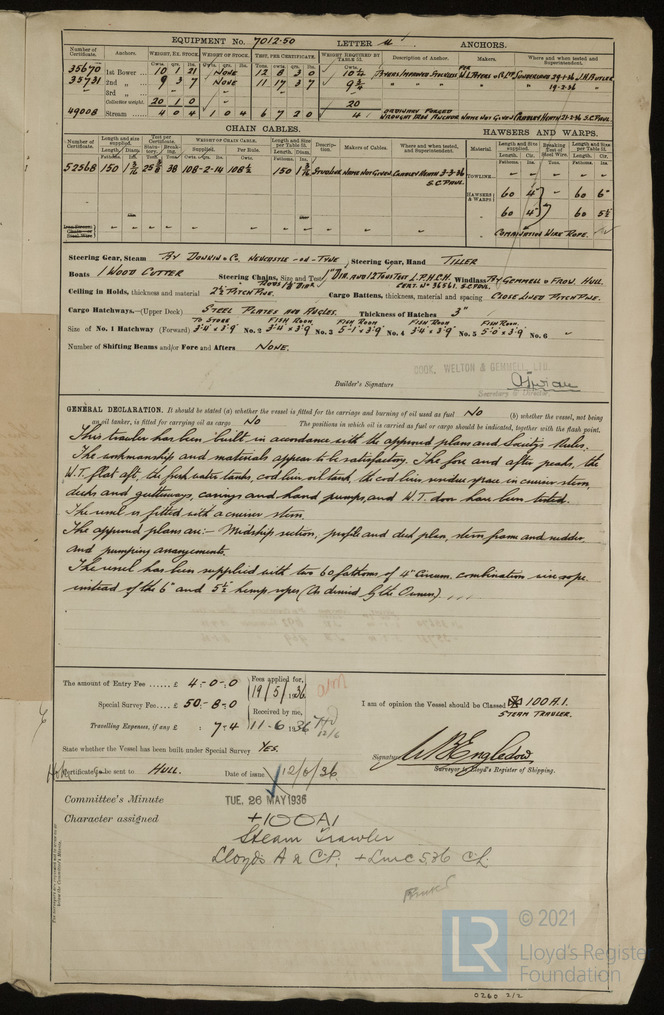 EQUIPMENT No. 7012.50 LETTER M ANCHORS.
Number of Certificate. Anchors. WEIGHT, EX. STOCK. WEIGHT OF STOCK. TEST, PER CERTIFICATE. WEIGHT REQUIRED BY TABLE 53. Description of Anchor. Makers. Where and when tested and Superintendent.
35670 1st Bower 10 1 21 NONE 12 8 3 0 10½ 29-1-36 J.H. BUTLER
35731 2nd " 9 3 7 NONE 11 17 3 7 19-2-36
3rd "
Collective weight. 20 1 0 20
49008 Stream 4 0 4 1 0 4 6 7 2 0 4 ORDINARY FORGED WROUGHT IRON ANCHOR NAME NOT GIVEN CRADLEY HEATH 21-2-36 S.C. PAUL.
CHAIN CABLES. HAWSERS AND WARPS.
Number of Certificate. Length and size supplied. Test per Certificate. WEIGHT OF CHAIN CABLE. Length and Size per Table 53. Description. Makers of Cables. Where and when tested, and Superintendent. Material. Length and Size supplied. Breaking Test of Steel Wire. Length and Size per Table 53.
Length. Diam. Supplied. Per Rule. Length. Diam.
52568 150 1 3/16 38 108-2-14 108½ 150 1 3/16 STUDLINK NAME NOT GIVEN CRADLEY HEATH 3-3-36 S.C. PAUL.
TOWLINE
HAWSERS & WARPS 60 4" 60 6"
60 4" 60 5½
COMBINATION WIRE ROPE.
Steering Gear, Steam BY DONKIN & CO. NEWCASTLE-ON-TYNE Steering Gear, Hand TILLER
Boats 1 WOOD CUTTER Steering Chains, Size and Test 1" DIA. AND 12 TONS TEST L.P.H.C.H. CERT. No 36561. S.C. PAUL. Windlass BY GEMMELL & FROW. HULL.
RODS 1⅛ DIA.
Ceiling in Holds, thickness and material 2½ PITCH PINE. Cargo Battens, thickness, material and spacing CLOSE LINED PITCH PINE.
Cargo Hatchways.—(Upper Deck) STEEL PLATES AND ANGLES. Thickness of Hatches 3"
TO STORE FISH ROOM FISH ROOM FISH ROOM FISH ROOM.
Size of No. 1 Hatchway (Forward) 3'-4" x 3'-9" No. 2 3'-4" x 3'-9" No. 3 5'-1" x 3'-9" No. 4 3'-4" x 3'-9" No. 5 5'-0" x 3'-9" No. 6 "
Number of Shifting Beams and/or Fore and Afters NONE.
COOK, WELTON & GEMMELL, LTD.
Builder's Signature
Secretary & Director.
GENERAL DECLARATION. It should be stated (a) whether the vessel is fitted for the carriage and burning of oil used as fuel NO (b) whether the vessel, not being
an oil tanker, is fitted for carrying oil as cargo NO The positions in which oil is carried as fuel or cargo should be indicated, together with the flash point.
This trawler has been built in accordance with the approved plans and Society's Rules.
The workmanship and materials appear to be satisfactory. The fore and after peaks, the
W.T. flat aft, the fresh water tanks, cod liver oil tank, the cod liver residue space in cruiser stern,
decks and gutterways, casings and hand pumps, and W.T. door have been tested.
The vessel is fitted with a cruiser stern.
The approved plans are:- Midship section, profile and deck plan, stern frame and rudder
and pumping arrangements.
The vessel has been supplied with two 60 fathoms of 4" circum. combination wire rope
instead of the 6" and 5½" hemp ropes (As desired by the Owners)...
The amount of Entry Fee ...... £ 4-0-0 Fees applied for, 19/5/1936
Special Survey Fee ... £ 50-8-0 Received by me,
Travelling Expenses, if any £ : 7-4 11-6 1936
12/6
I am of opinion the Vessel should be Classed ✠ 100A.1.
STEAM TRAWLER.
State whether the Vessel has been built under Special Survey YES.
Signature W.B. Engledow
Surveyor to Lloyd's Register of Shipping.
Certificate to be sent to HULL. Date of issue 12/6/36
Committee's Minute TUE. 26 MAY 1936
Character assigned +100A1
Steam Trawler
Lloyds A & C.P. + LMC 5,36 C.L.
© 2021
LR Lloyd's Register
Foundation
0260 2/2